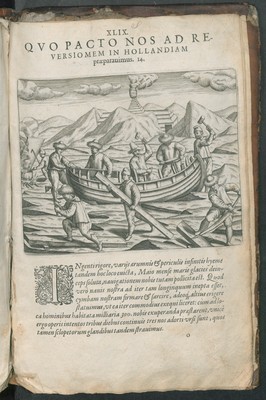 XLIX.
QVO PACTO NOS AD RE-
VERSIONEM IN HOLLANDIAM
præparauimus. 14.
INgenti rigore, varijs ærumnis & periculis infinitis hyeme
tandem hoc loco exacta, Maio mense maris glacies dein-
ceps soluta, nauigationem nobis tutam pollicita est. Quod
verò nauis nostra ad iter tam longinquum inepta esset,
cymbam nostram firmare & sarcire, adeoq́ altius erigere
statuimus, vt ea iter commodius exequi liceret: cum ad lo-
ca hominibus habitata milliaria nobis exuperanda præstarent,
ergo operi intentos tribus diebus continuis tres nos adorti vrsi sunt, quos
tamen sclopetorum glandibus tandem strauimus.